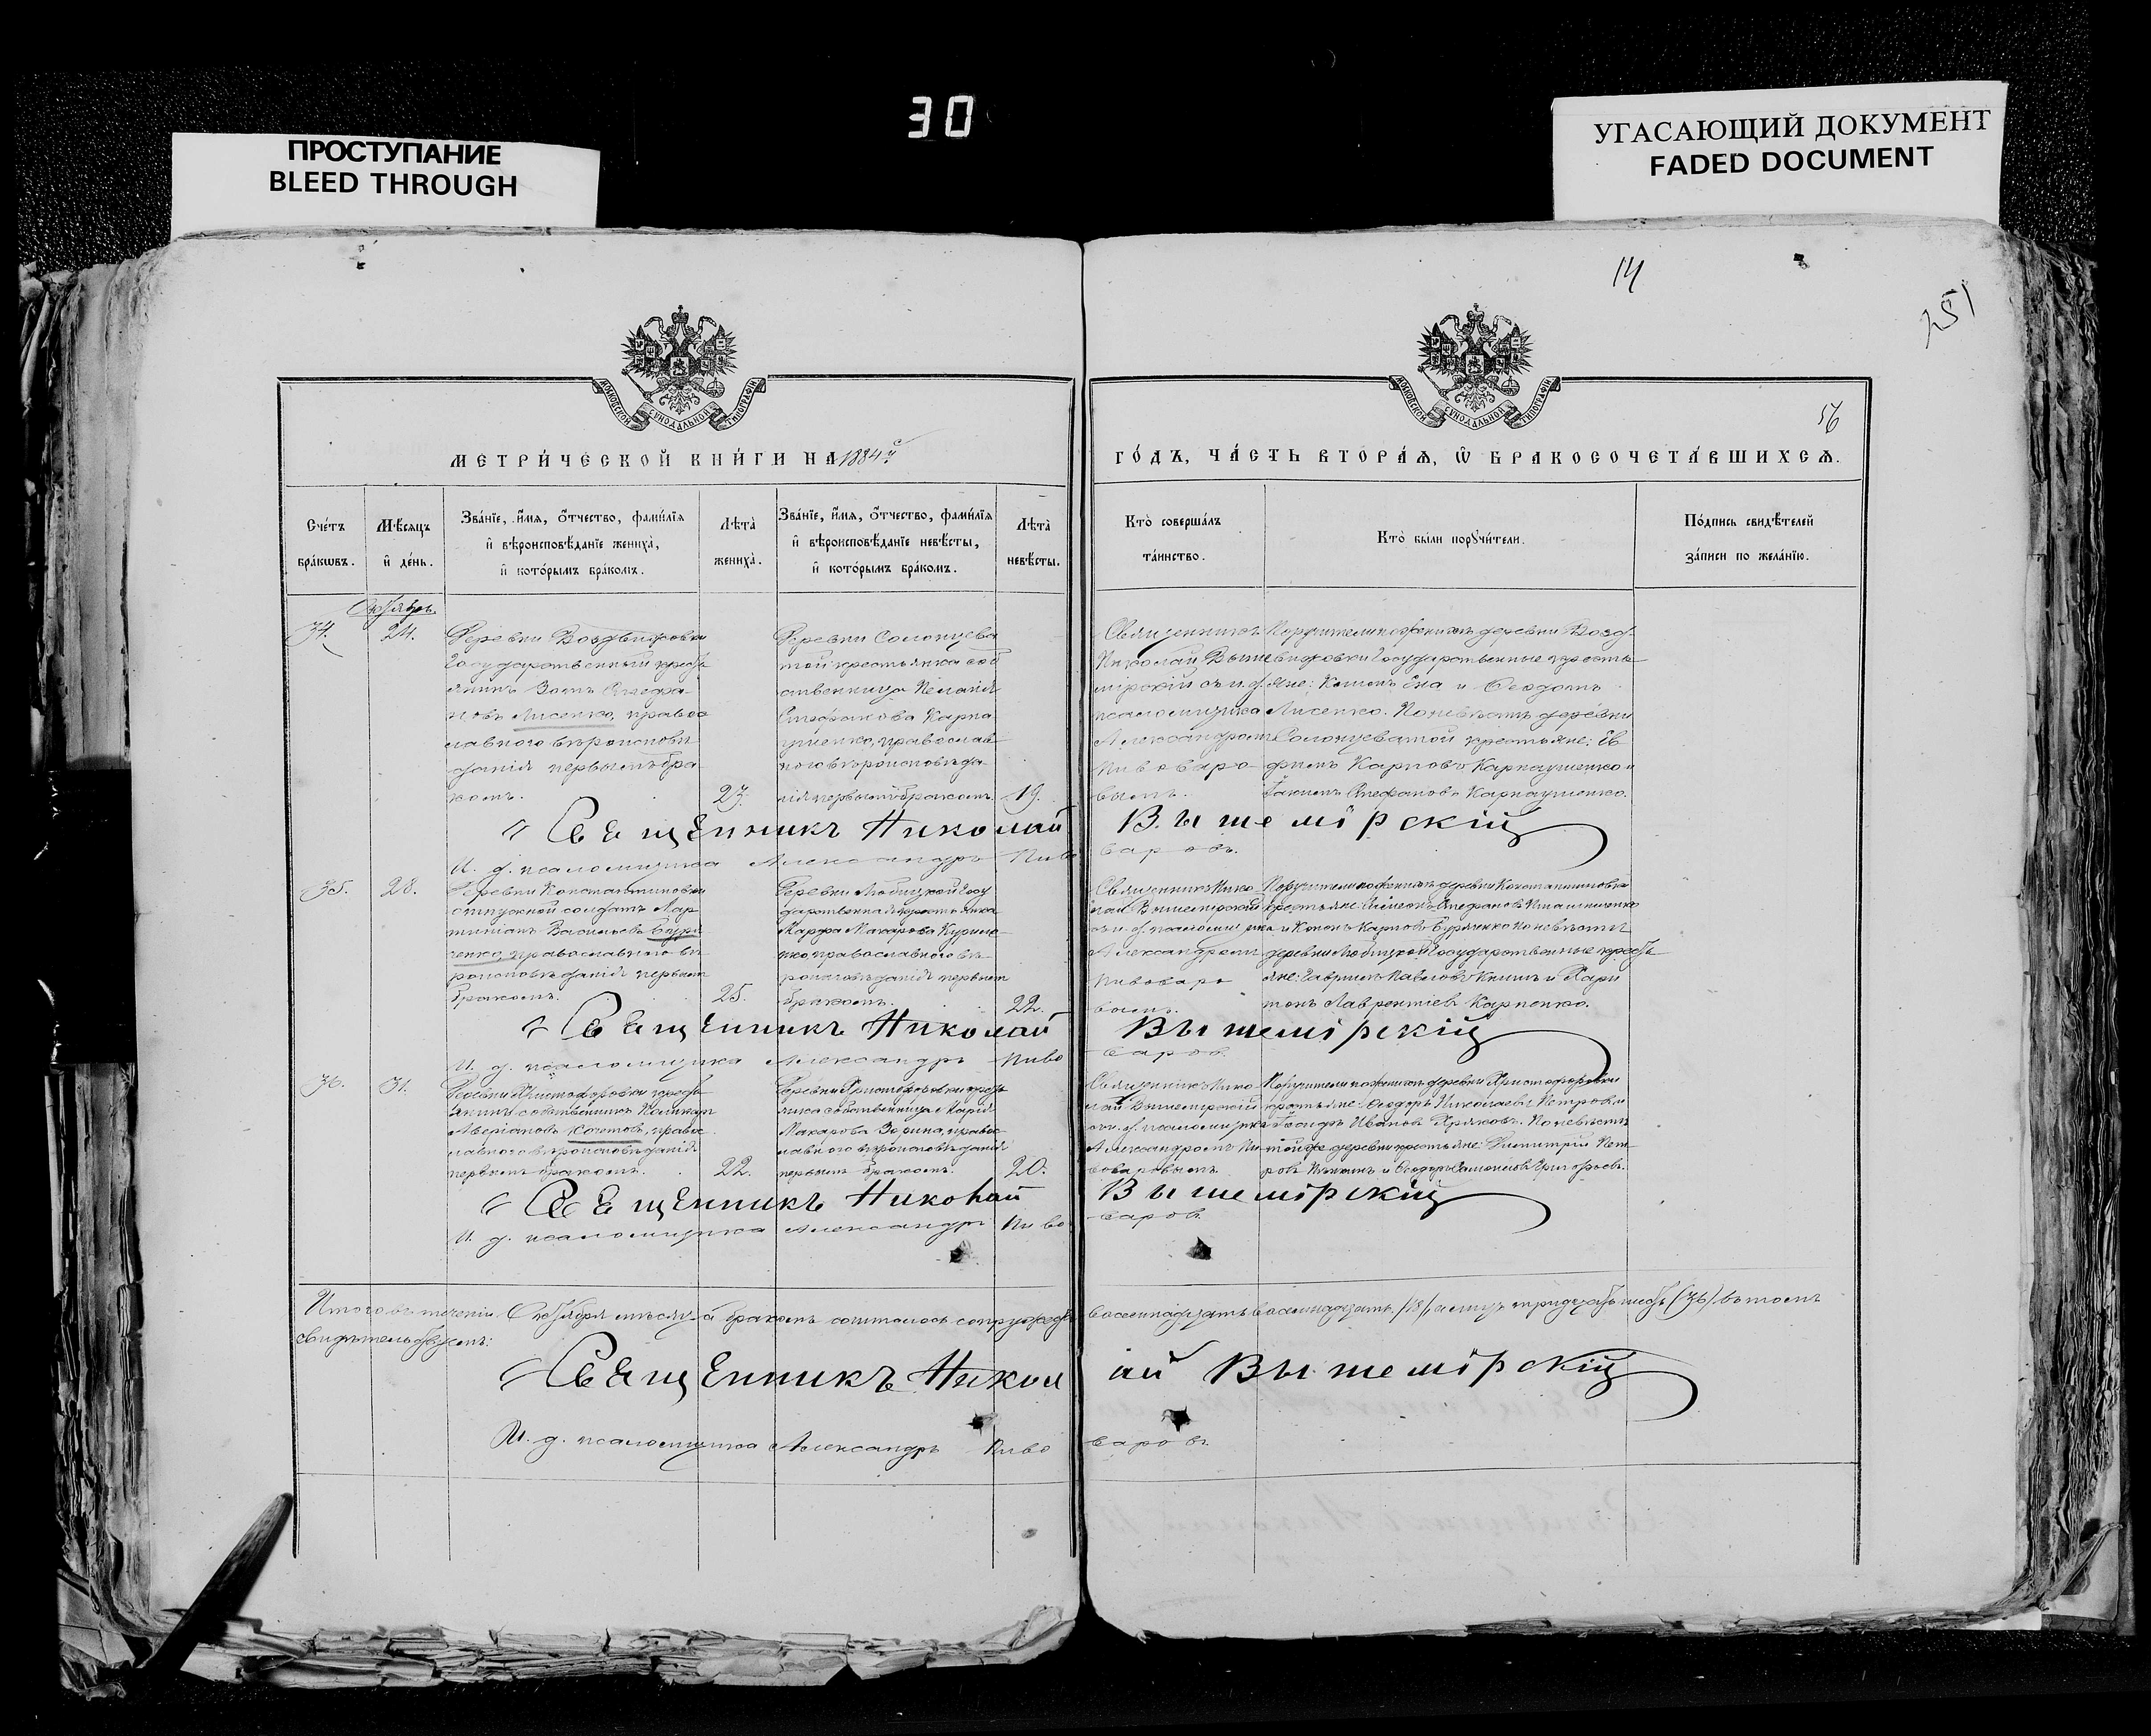 30
ПРОСТУПАНИЕ
BLEED THROUGH
УГАСАЮЩИЙ ДОКУМЕНТ
FADED DOCUMENT
14
251
56
МОСКОВСКОЙ СУНОДАЛЬНОЙ ТИПОГРАФІИ
МОСКОВСКОЙ СУНОДАЛЬНОЙ ТИПОГРАФІИ
МЕТРИ́ЧЕСКОЙ КНИ́ГИ НА 1884й
ГО́ДЪ, ЧА́СТЬ ВТОРА́Ѧ, Ѡ БРАКОСОЧЕТА́ВШИХСѦ.
Сче́тъ бра́кѡвъ.
Мѣ́сяцъ и де́нь.
Зва́нїе, и́мя, о́тчество, фами́лїя
и вѣроисповѣ́данїе жениха̀,
и кото́рымъ бра́комъ.
Лѣта̀ жениха̀.
Зва́нїе, и́мя, о́тчество, фами́лїя
и вѣроисповѣ́данїе невѣ́сты,
и кото́рымъ бра́комъ.
Лѣта̀ невѣ́сты.
Кто̀ соверша́лъ та́инство.
Кто̀ бы́ли порꙋчи́тели.
По́дпись свидѣ́телей
за́писи по жела́нїю.
Октябрь
34.
24.
Деревни Воздвижовки
Государственный кресть
янинъ Стефа
новъ Лисенко, правос
лавного вѣроисповѣ
данія первымъ бра
комъ.
23.
Деревни Солонцева
той крестьянка соб
ственница Пелагія
Стефанова Карна
ушенко, православ
ного вѣроисповѣда
нія первымъ бракомъ.
19.
Священникъ
Николай Выше
мірскій съ и. д.
псаломщика
Александромъ
Пивоваро
вымъ.
Поручители по женихѣ деревни Возд
вижовки Государственные кресть
яне: и Феодотъ
Лисенко. По невѣстѣ деревни
Солонцеватой крестьяне: Ев
фимъ Карповъ Карнаушенко и
Стефановъ Карнаушенко.
Священникъ Николай Вышемірскій
И. д. псаломщика Александръ Пивоваровъ.
35.
28.
Деревни Константиновки
отпускной солдатъ Мар
тиніанъ Васильевъ Буря
ченко, православного вѣ
роисповѣданія первымъ
бракомъ.
25.
Деревни Любицкой Госу
дарственная крестьянка
Марфа Макарова Курило
православного вѣ
роисповѣданія первымъ
бракомъ.
22.
Священникъ Нико
лай Вышемірскій
съ и. д. псаломщика
Александромъ
Пивоваро
вымъ.
Поручители по женихѣ деревни Константиновки
крестьяне: Стефановъ
и Кононъ Карповъ Буряченко по невѣстѣ
деревни Любицкой Государственные кресть
яне: Гавриилъ Павловъ и Хари
тонъ Лаврентіевъ Карпенко.
Священникъ Николай Вышемірскій
И. д. псаломщика Александръ Пивоваровъ.
36.
31.
Деревни Христофоровки кресть
янинъ собственникъ
Аверіановъ Кочетовъ, правос
лавного вѣроисповѣданія
первымъ бракомъ.
22.
Деревни Христофоровки кресть
янка собственница Марія
Макарова Зорина, правос
лавного вѣроисповѣданія
первымъ бракомъ.
20.
Священникъ Нико
лай Вышемірскій
съ и. д. псаломщика
Александромъ Пи
воваровымъ.
Поручители по женихѣ деревни Христофоровки
крестьяне: Феодоръ Николаевъ Петровъ и
Ивановъ Хряковъ. По невѣстѣ
той же деревни крестьяне: Димитрій Пет
ровъ и Феодоръ Григорьевъ.
Священникъ Николай Вышемірскій
И. д. псаломщика Александръ Пивоваровъ.
Итого въ теченіи Октября мѣсяца бракомъ сочталось восемнадцать /18/, тридцать шесть (36). въ томъ
свидѣтельствуемъ:
Священникъ Николай Вышемірскій
И. д. псаломщика Александръ Пивоваровъ.